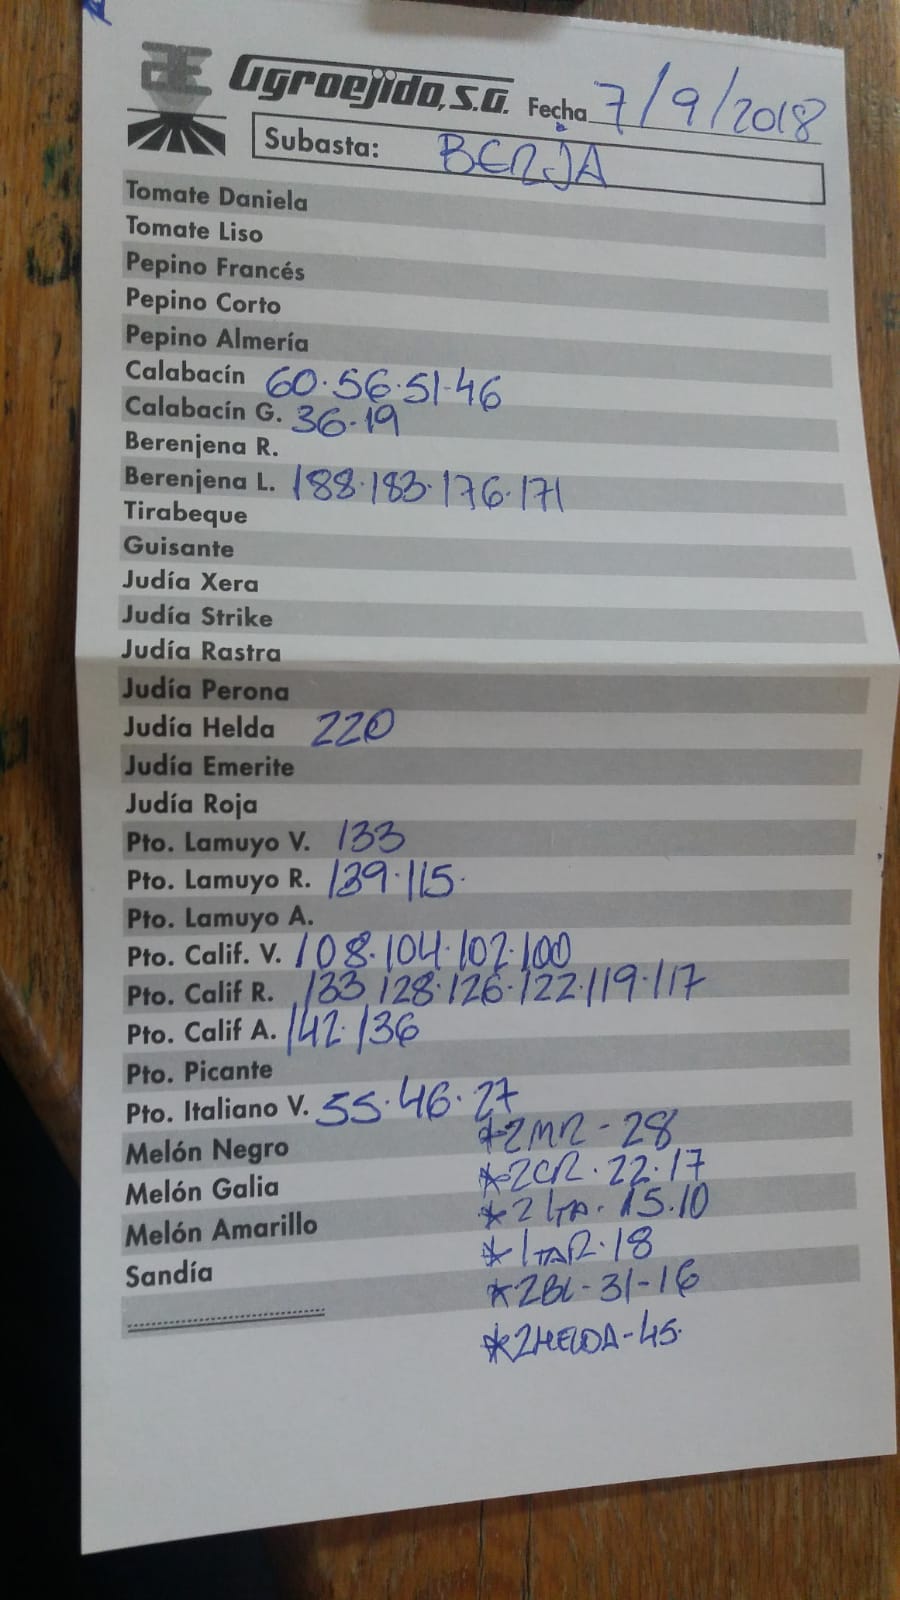 Agroejido, S.A. Fecha 7/9/2018
Subasta: BERJA
Tomate Daniela
Tomate Liso
Pepino Francés
Pepino Corto
Pepino Almería
Calabacín 60·56·51·46
Calabacín G. 36·19
Berenjena R.
Berenjena L. 188·183·176·171
Tirabeque
Guisante
Judía Xera
Judía Strike
Judía Rastra
Judía Perona
Judía Helda 220
Judía Emerite
Judía Roja
Pto. Lamuyo V. 133
Pto. Lamuyo R. 139·115·
Pto. Lamuyo A.
Pto. Calif. V. 108·104·102·100
Pto. Calif R. 133 128·126·122·119·117
Pto. Calif A. 142·136
Pto. Picante
Pto. Italiano V. 55·46·27
Melón Negro *2MR-28
Melón Galia *2CR·22·17
Melón Amarillo *2 ITA·15·10
Sandía *1TAR·18
*2BL-31-16
*2HELDA-45·